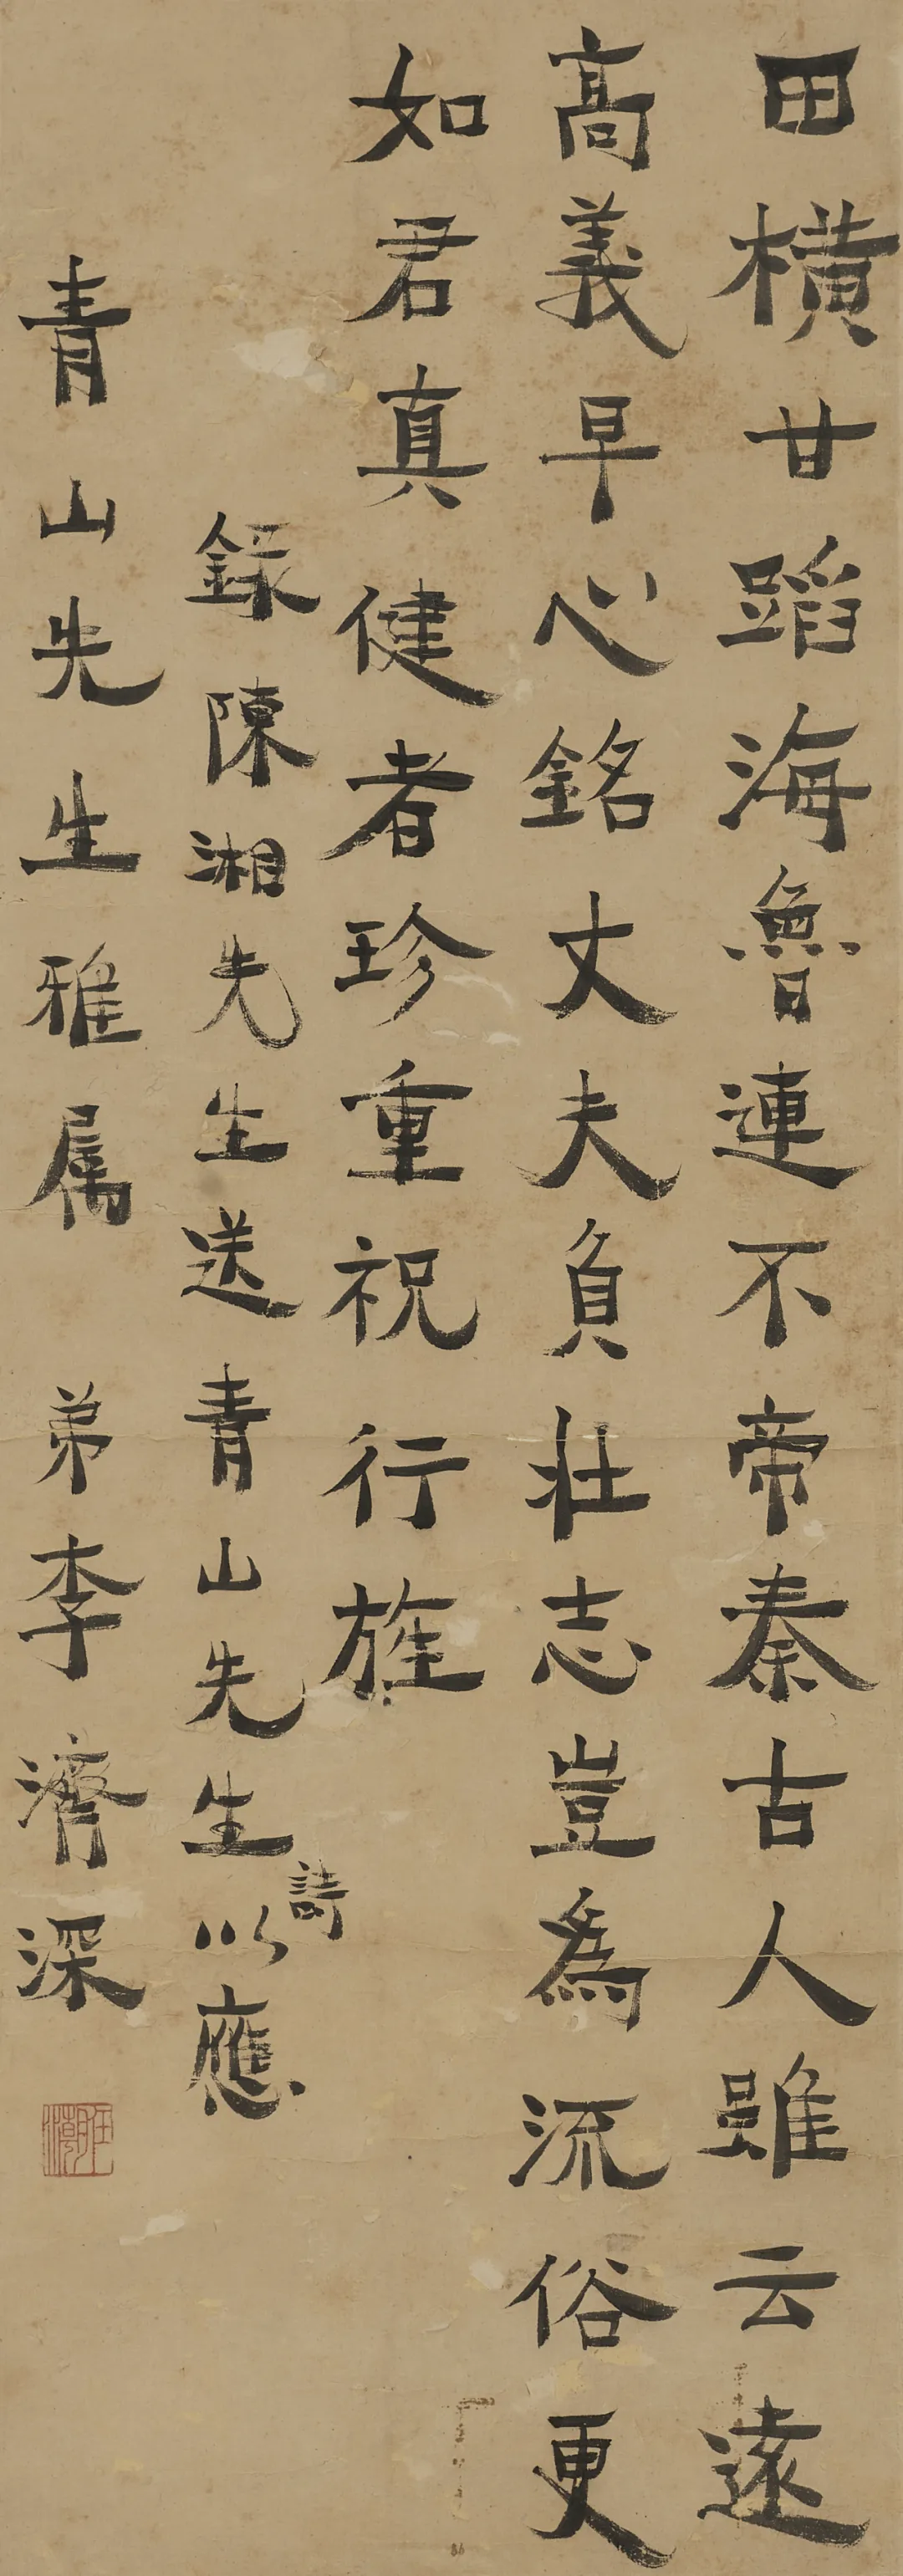 田橫甘蹈海魯連不帝秦古人雖云遠
高義早心銘丈夫負壯志豈為流俗更
如君真健者珍重祝行旌
錄陳湘先生送青山先生詩以應
青山先生雅属 弟李濟深